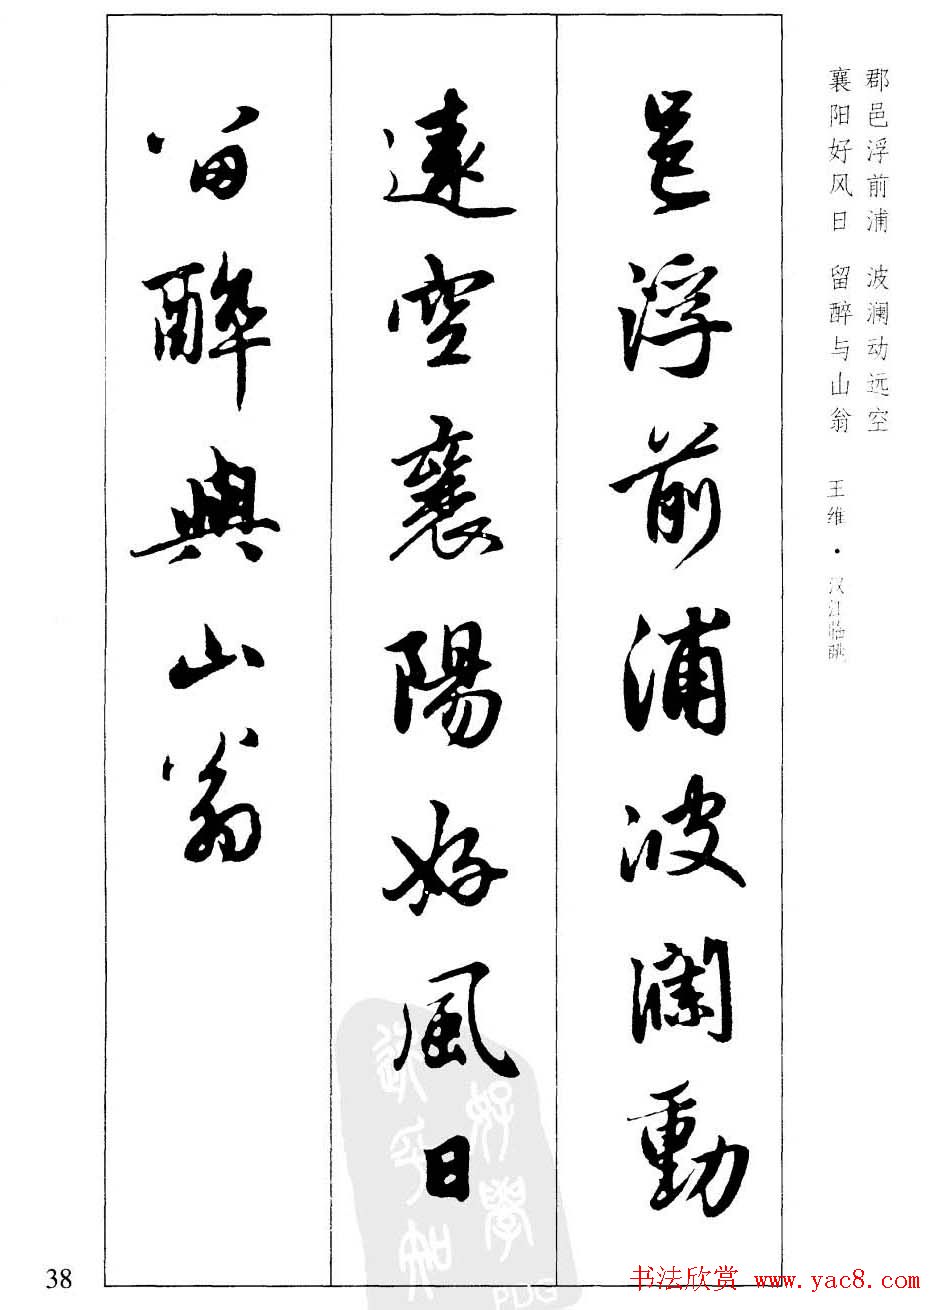 邑浮前浦波瀾動
遠空襄陽好風日
留醉與山翁
郡邑浮前浦 波澜动远空
襄阳好风日 留醉与山翁 王维·汉江临眺
好學
然乎知
PDG
38
书法欣赏 www.yac8.com